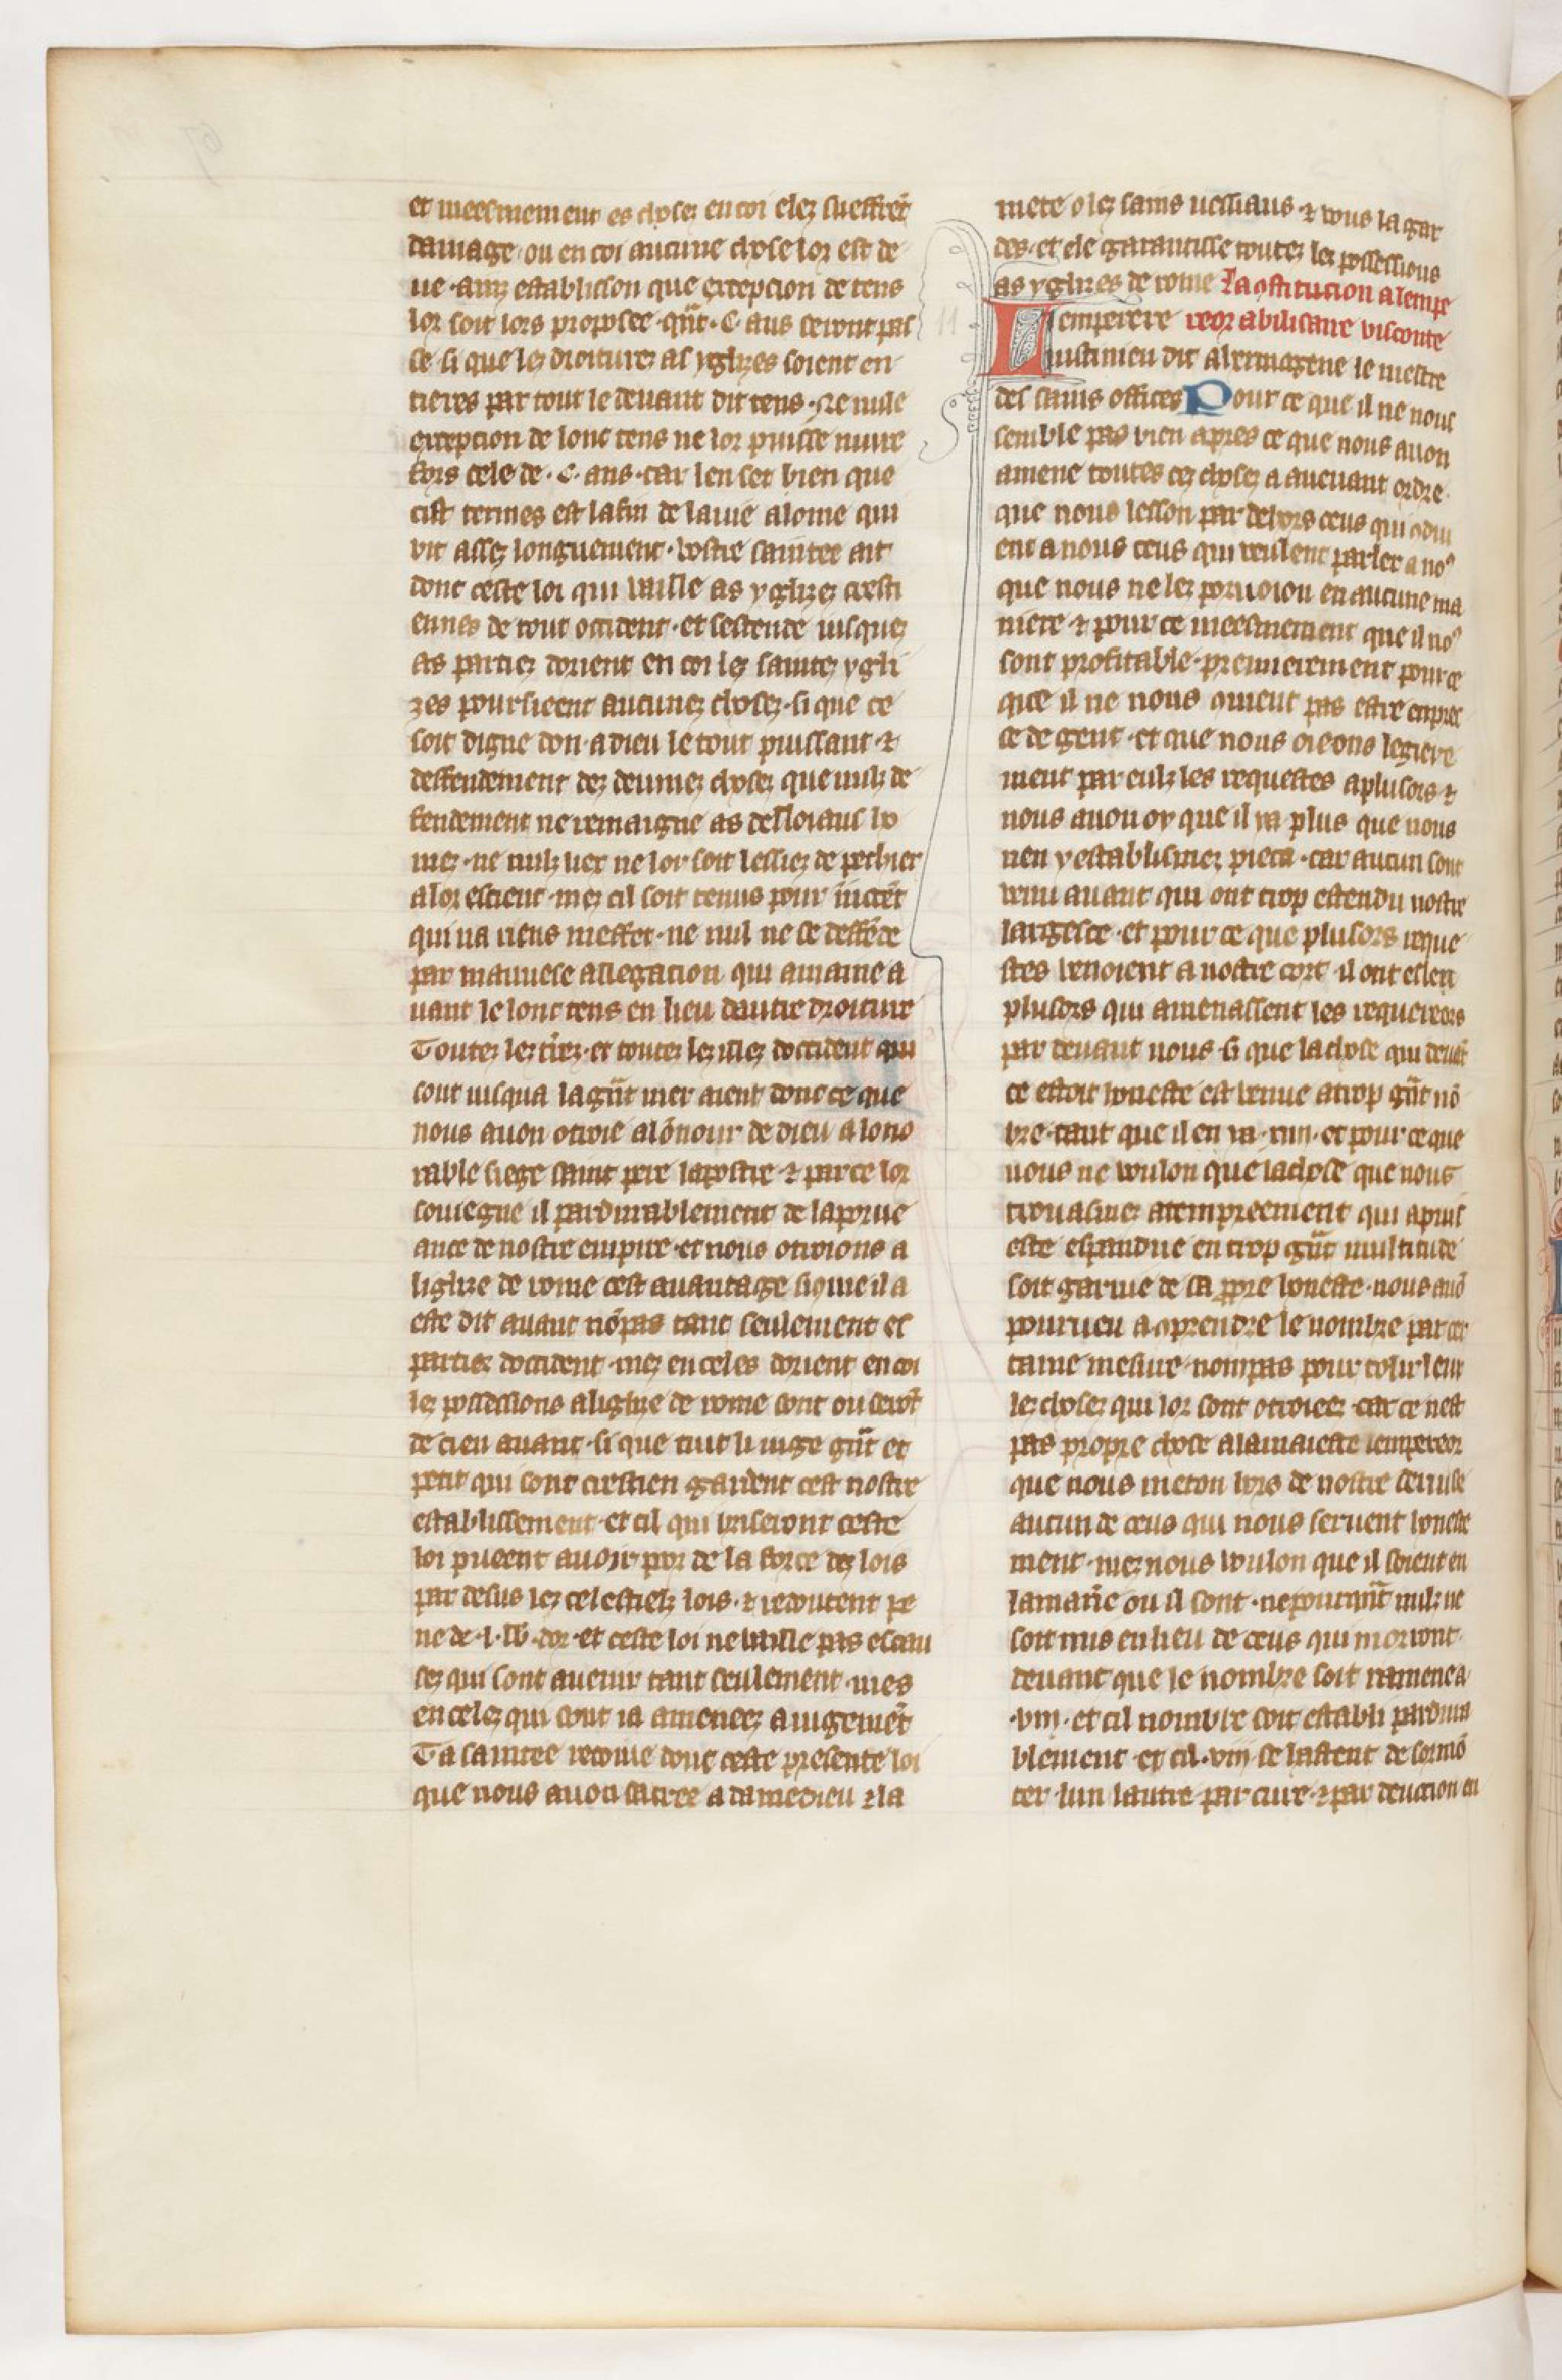 et meesmement es choses en coi elez sueffrēt
damage ou en coi aucune chose lor est de
ue · ainz establisson que excepcion de tens
lor soit lors proposee · qn̄t · C · ans seront pas
se si que lez droiturez as yglizes soient en
tieres par tout le deuant dit tens · Ne nule
excepcion de lonc tens ne lor puisse nuire
fors cele de · C · ans · car len set bien que
cist termes est la fin de la uie a lome qui
vit assez longuement · vostre saintee ait
donc ceste loi qui vaille as yglizez cresti
ennes de tout occident · et sestende iusquez
as partiez dorient en coi lez saintez ygli
zes poursieent aucunez chosez · si que ce
soit digne don · a dieu le tout puissant ⁊
deffendement dez deuinez chosez que nulz de
fendement ne remaigne as desloiaus ho
mez · ne nulz uex ne lor soit lessiez de pechier
a lor escient · mez cil soit tenus pour īnocēt
qui na riens meffet · ne nul ne se deffēde
par mauuese allegacion qui amaine a
uant le lonc tens en lieu dautre droiture
Toutez lez t̄rez · et toutez lez illez doccident qui
sont iusqua la gn̄t mer aient donc ce que
nous auon otroie a lōnour de dieu a lono
rable siege saint pere lapostre ⁊ par ce lor
souiegne il pardurablement de la porue
ance de nostre empire · et nous otroions a
liglize de rome cest auantage si qme il a
este dit auant nōpas tant seulement es
partiez doccident · mez en celes dorient en coi
lez possessions a liglize de rome sont ou serōt
de cieu auant · si que tuit li iuge gn̄t et
petit qui sont crestien gardent cest nostre
establissement · et cil qui briseront ceste
loi pueent auoir por de la force dez lois
par desus lez celestielz lois · ⁊ redoutent pe
ne de · l · lb · dor · et ceste loi ne vaille pas es cau
sez qui sont auenir tant seulement · mes
en celez qui sont ia amenees a iugemēt
Ta saintee recoiue donc ceste presente loi
que nous auon sacree a damedieu ⁊ la
mete o lez sains uessiaus ⁊ vous la gar
des · et ele garantisse toutez lez possessions
as yglizes de rome La ɔstitucion a lempe
reor a bilisaire visconte
Lemperere
iustinien dit a lermogene le mestre
des sains offices Pour ce que il ne nous
semble pas bien apres ce que nous auon
amene toutes cez chosez a auenant ordre ·
que nous lesson par dehors ceus qui ɔdui
ent a nous ceus qui veulent parler a noꝰ
que nous ne lez poruoion en aucune ma
niere ⁊ pour ce meesmement que il noꝰ
sont profitable · premierement pour ce
que il ne nous ɔuient pas estre en pres
ce de gent · et que nous oieons legiere
ment par eulz les requestes a plusors ⁊
nous auon oy que il ia plus que nous
nen y establismez pieca · car aucun sont
venu auant qui ont trop estendu nostre
largesce · et pour ce que plusors reque
stes venoient a nostre cort · il ont eslen
plusors qui amenassent les requereors
par deuant nous · si que la chose qui deuāt
ce estoit honeste est venue a trop gn̄t nō
bre · tant que il en ia · xiiii · et pour ce que
nous ne voulon que la chose que nous
trouasmez atempreement qui apruis
este espandue en trop gn̄t multitude
soit garnie de sa ꝓpre honeste · nous auō
pourueu a ɔprendre le nombre par cer
taine mesure · nompas pour tolir leur
lez chosez qui lor sont otroiees · car ce nest
pas propre chose a la maieste lempereor
que nous meton hors de nostre seruise
aucun de ceus qui nous seruent honeste
ment · mez nous voulon que il soient en
la manīe ou il sont · ne pourqn̄t nulz ne
soit mis en lieu de ceus qui morront
deuant que le nombre soit ramene a
· viii · et cil nombre soit establi pardura
blement · et cil · viii · se hastent de sormō
ter · lun lautre par cure ⁊ par deuocion en
11